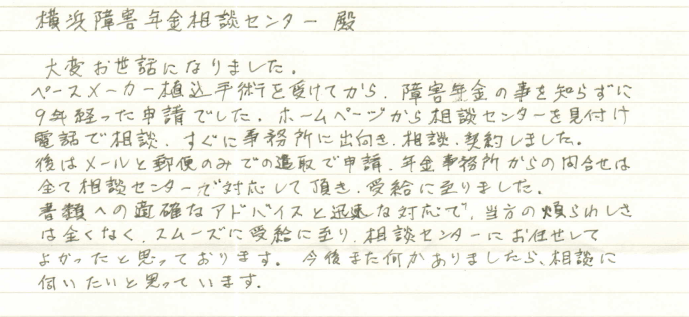 横浜障害年金相談センター 殿
大変お世話になりました。
ペースメーカー植込手術を受けてから、障害年金の事を知らずに
9年経った申請でした。ホームページから相談センターを見付け
電話で相談、すぐに事務所に出向き、相談、契約しました。
後はメールと郵便のみでの遣取で申請、年金事務所からの問合せは
全て相談センターが対応して頂き、受給に至りました。
書類への適確なアドバイスと迅速な対応で、当方の煩らわしさ
は全くなく、スムーズに受給に至り、相談センターにお任せして
よかったと思っております。今後また何かありましたら、相談に
伺いたいと思っています。